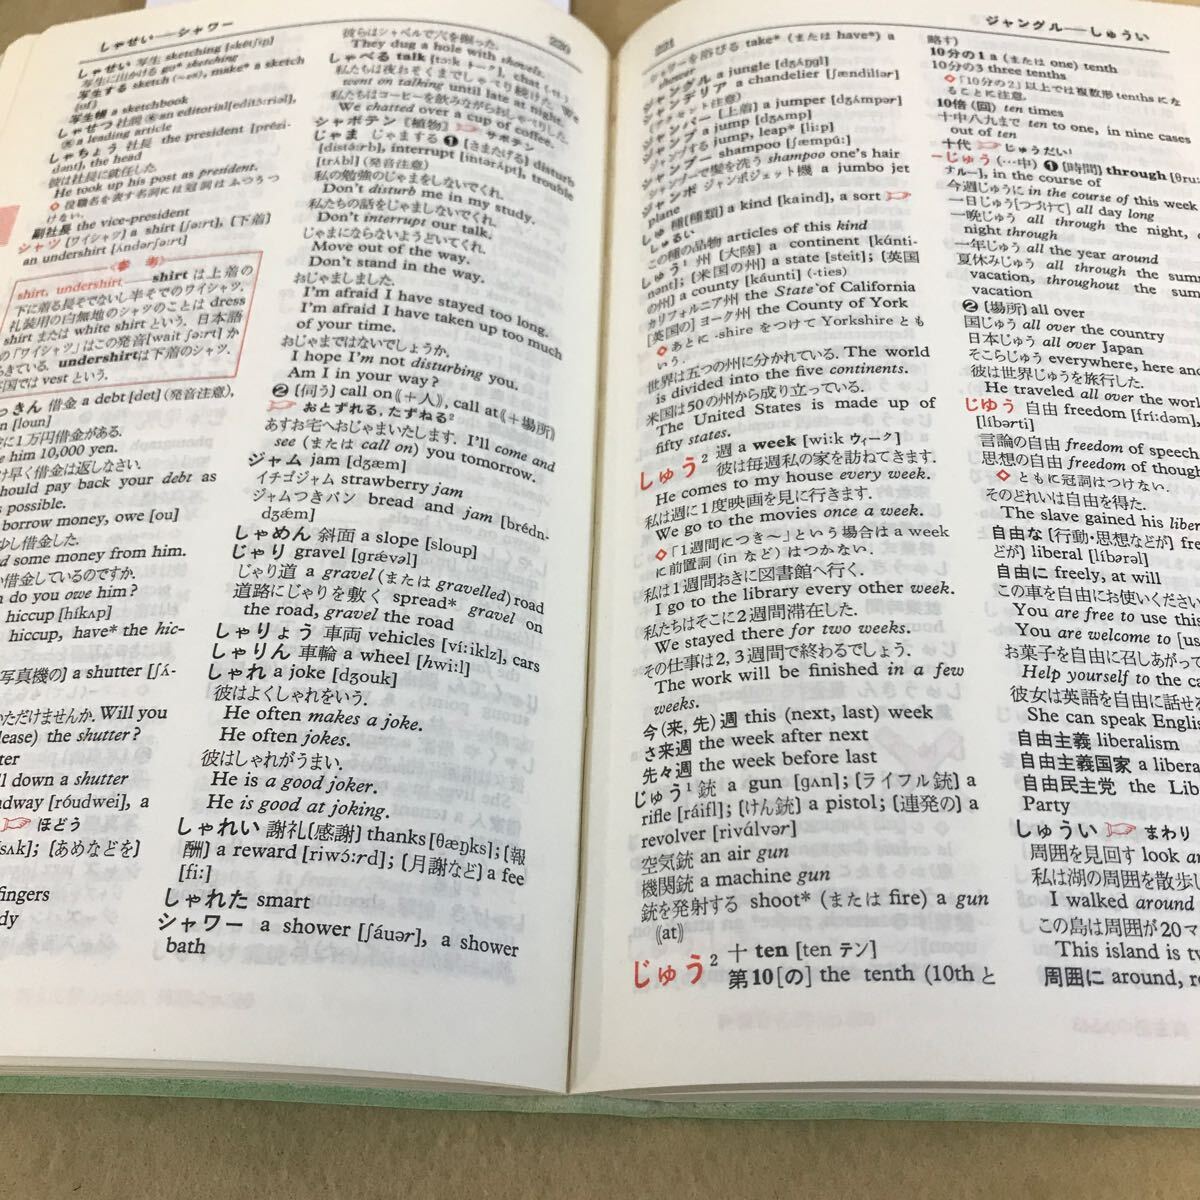 しゃせい——シャワー
220
しゃせい 写生 sketching [skétʃiŋ]
写生に出かける go* sketching
写生する sketch (〜es), make* a sketch
(of)
写生帳 a sketchbook
しゃせつ 社説
a leading article
しゃちょう 社長 the president [prézi-
dənt], the head
彼は社長に就任した.
He took up his post as president.
◇ 役職名を表す名詞には冠詞はふつうつ
けない.
副社長 the vice-president
シャツ [ワイシャツ] a shirt [ʃə:rt], [下着]
an undershirt [ʌ́ndərʃə:rt]
《参考》
shirt, undershirt shirt は上着の
下に着る長そでないし半そでのワイシャツ.
礼装用の白無地のシャツのことは dress
shirt または white shirt という. 日本語
の「ワイシャツ」はこの発音[wait ʃə:rt] か
らきている. undershirtは下着のシャツ.
英国では vest という.
っきん 借金 a debt [det] (発音注意),
n [loun]
に1万円借金がある.
him 10,000 yen.
け早く借金は返しなさい.
hould pay back your debt as
s possible.
borrow money, owe [ou]
少し借金した.
d some money from him.
借金しているのですか.
do you owe him?
hiccup [híkʌp]
hiccup, have* the hic-
写真機の] a shutter [ʃʌ́-
ただけませんか. Will you
lease) the shutter?
ter
ll down a shutter
adway [róudwei], a
☞ ほどう
[sʌk]; [あめなどを]
fingers
dy
彼らはシャベルで穴を掘った.
They dug a hole with shovels.
しゃべる talk [tɔ:k トーク], chat
私たちは夜おそくまでしゃべり続けた. We
went on talking until late at night.
私たちはコーヒーを飲みながらおしゃべりした.
We chatted over a cup of coffee.
シャボテン [植物] ☞ サボテン
じゃま じゃまする ❶ [さまたげる] disturb
[distə́:rb], interrupt [intərʌ́pt], trouble
[trʌ́bl] (発音注意)
私の勉強のじゃまをしないでくれ.
Don't disturb me in my study.
私たちの話をじゃましないでくれ.
Don't interrupt our talk.
じゃまにならないようどいてくれ.
Move out of the way.
Don't stand in the way.
おじゃましました.
I'm afraid I have stayed too long.
I'm afraid I have taken up too much
of your time.
おじゃまではないでしょうか.
I hope I'm not disturbing you.
Am I in your way?
❷ [伺う] call on《+人》, call at《+場所》
☞ おとずれる, たずねる²
あすお宅へおじゃまいたします. I'll come and
see (または call on) you tomorrow.
ジャム jam [dʒæm]
イチゴジャム strawberry jam
ジャムつきパン bread and jam [brédn-
dʒǽm]
しゃめん 斜面 a slope [sloup]
じゃり gravel [grǽvəl]
じゃり道 a gravel (または gravelled) road
道路にじゃりを敷く spread* gravel on
the road, gravel the road
しゃりょう 車両 vehicles [ví:iklz], cars
しゃりん 車輪 a wheel [hwi:l]
しゃれ a joke [dʒouk]
彼はよくしゃれをいう.
He often makes a joke.
He often jokes.
彼はしゃれがうまい.
He is a good joker.
He is good at joking.
しゃれい 謝礼[感謝] thanks[θæŋks]; [報
酬] a reward [riwɔ́:rd]; [月謝など] a fee
[fi:]
しゃれた smart
シャワー a shower [ʃáuər], a shower
bath
221
ジャングル——しゅうい
シャワーを浴びる take* (または have*) a
shower
ジャングル a jungle [dʒʌ́ŋgl]
シャンデリア a chandelier [ʃændiliər]
ジャンパー [上着] a jumper [dʒʌ́mpər]
ジャンプ a jump [dʒʌmp]
ジャンプする jump, leap* [li:p]
シャンプー shampoo [ʃæmpú:]
シャンプーで髪を洗う shampoo one's hair
ジャンボ ジャンボジェット機 a jumbo jet
plane
しゅ 種[種類] a kind [kaind], a sort ☞
しゅるい
この種の品物 articles of this kind
しゅう¹ 州 [大陸] a continent [kánti-
nənt]; [米国の州] a state [steit]; [英国
の州] a county [káunti] (-ties)
カリフォルニア州 the State of California
[英国の] ヨーク州 the County of York
◇ あとに -shire をつけて Yorkshire とも
いう.
世界は五つの州に分かれている. The world
is divided into the five continents.
米国は50の州から成り立っている.
The United States is made up of
fifty states.
しゅう² 週 a week [wi:k ウィーク]
彼は毎週私の家を訪ねてきます.
He comes to my house every week.
私は週に1度映画を見に行きます.
We go to the movies once a week.
◇ 「1週間につき〜」という場合は a week
に前置詞 (in など) はつかない.
私は1週間おきに図書館へ行く.
I go to the library every other week.
私たちはそこに2週間滞在した.
We stayed there for two weeks.
その仕事は2, 3週間で終わるでしょう.
The work will be finished in a few
weeks.
今(来, 先)週 this (next, last) week
さ来週 the week after next
先々週 the week before last
じゅう¹ 銃 a gun [gʌn]; [ライフル銃] a
rifle [ráifl]; [けん銃] a pistol; [連発の] a
revolver [riválvər]
空気銃 an air gun
機関銃 a machine gun
銃を発射する shoot* (または fire) a gun
《at》
じゅう² 十 ten [ten テン]
第10[の] the tenth (10th と
略す)
10分の1 a (または one) tenth
10分の3 three tenths
◇「10分の2」以上では複数形tenthsにな
ることに注意.
10倍(回) ten times
十中八九まで ten to one, in nine cases
out of ten
十代 ☞ じゅうだい¹
-じゅう (…中) ❶ [時間] through [θru:
ナルー], in the course of
今週じゅうに in the course of this week
一日じゅう[つづけて] all day long
一晩じゅう all through the night, a
night through
一年じゅう all the year around
夏休みじゅう all through the sum
vacation, throughout the sum
vacation
❷ [場所] all over
国じゅう all over the country
日本じゅう all over Japan
そこらじゅう everywhere, here and
彼は世界じゅうを旅行した.
He traveled all over the
じゆう 自由 freedom [frí:dəm]
[líbərti]
言論の自由 freedom of speech
思想の自由 freedom of though
◇ ともに冠詞はつけない.
そのどれいは自由を得た.
The slave gained his liber
自由な [行動・思想などが] fre
どが] liberal [líbərəl]
自由に freely, at will
この車を自由にお使いください
You are free to use this
You are welcome to [us
お菓子を自由に召しあがって
Help yourself to the ca
彼女は英語を自由に話せる
She can speak English
自由主義 liberalism
自由主義国家 a libera
自由民主党 the Lib
Party
しゅうい ☞ まわり
周囲を見回す look ar
私は湖の周囲を散歩し
I walked around
この島は周囲が20マ
This island is tw
周囲に around, ro